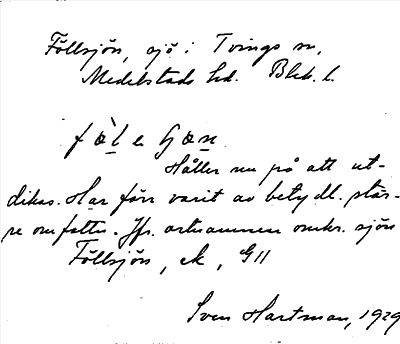 Föllsjön, sjö i Tvings sn,
Medelstads hd. Blek. l.
fœ̀lehœn
Håller nu på att ut-
dikas. Har förr varit av betydl. stör-
re omfattn. Jfr. ortnamnen omkr. sjön
Föllsjön, ek, G11
Sven Hartman, 1929